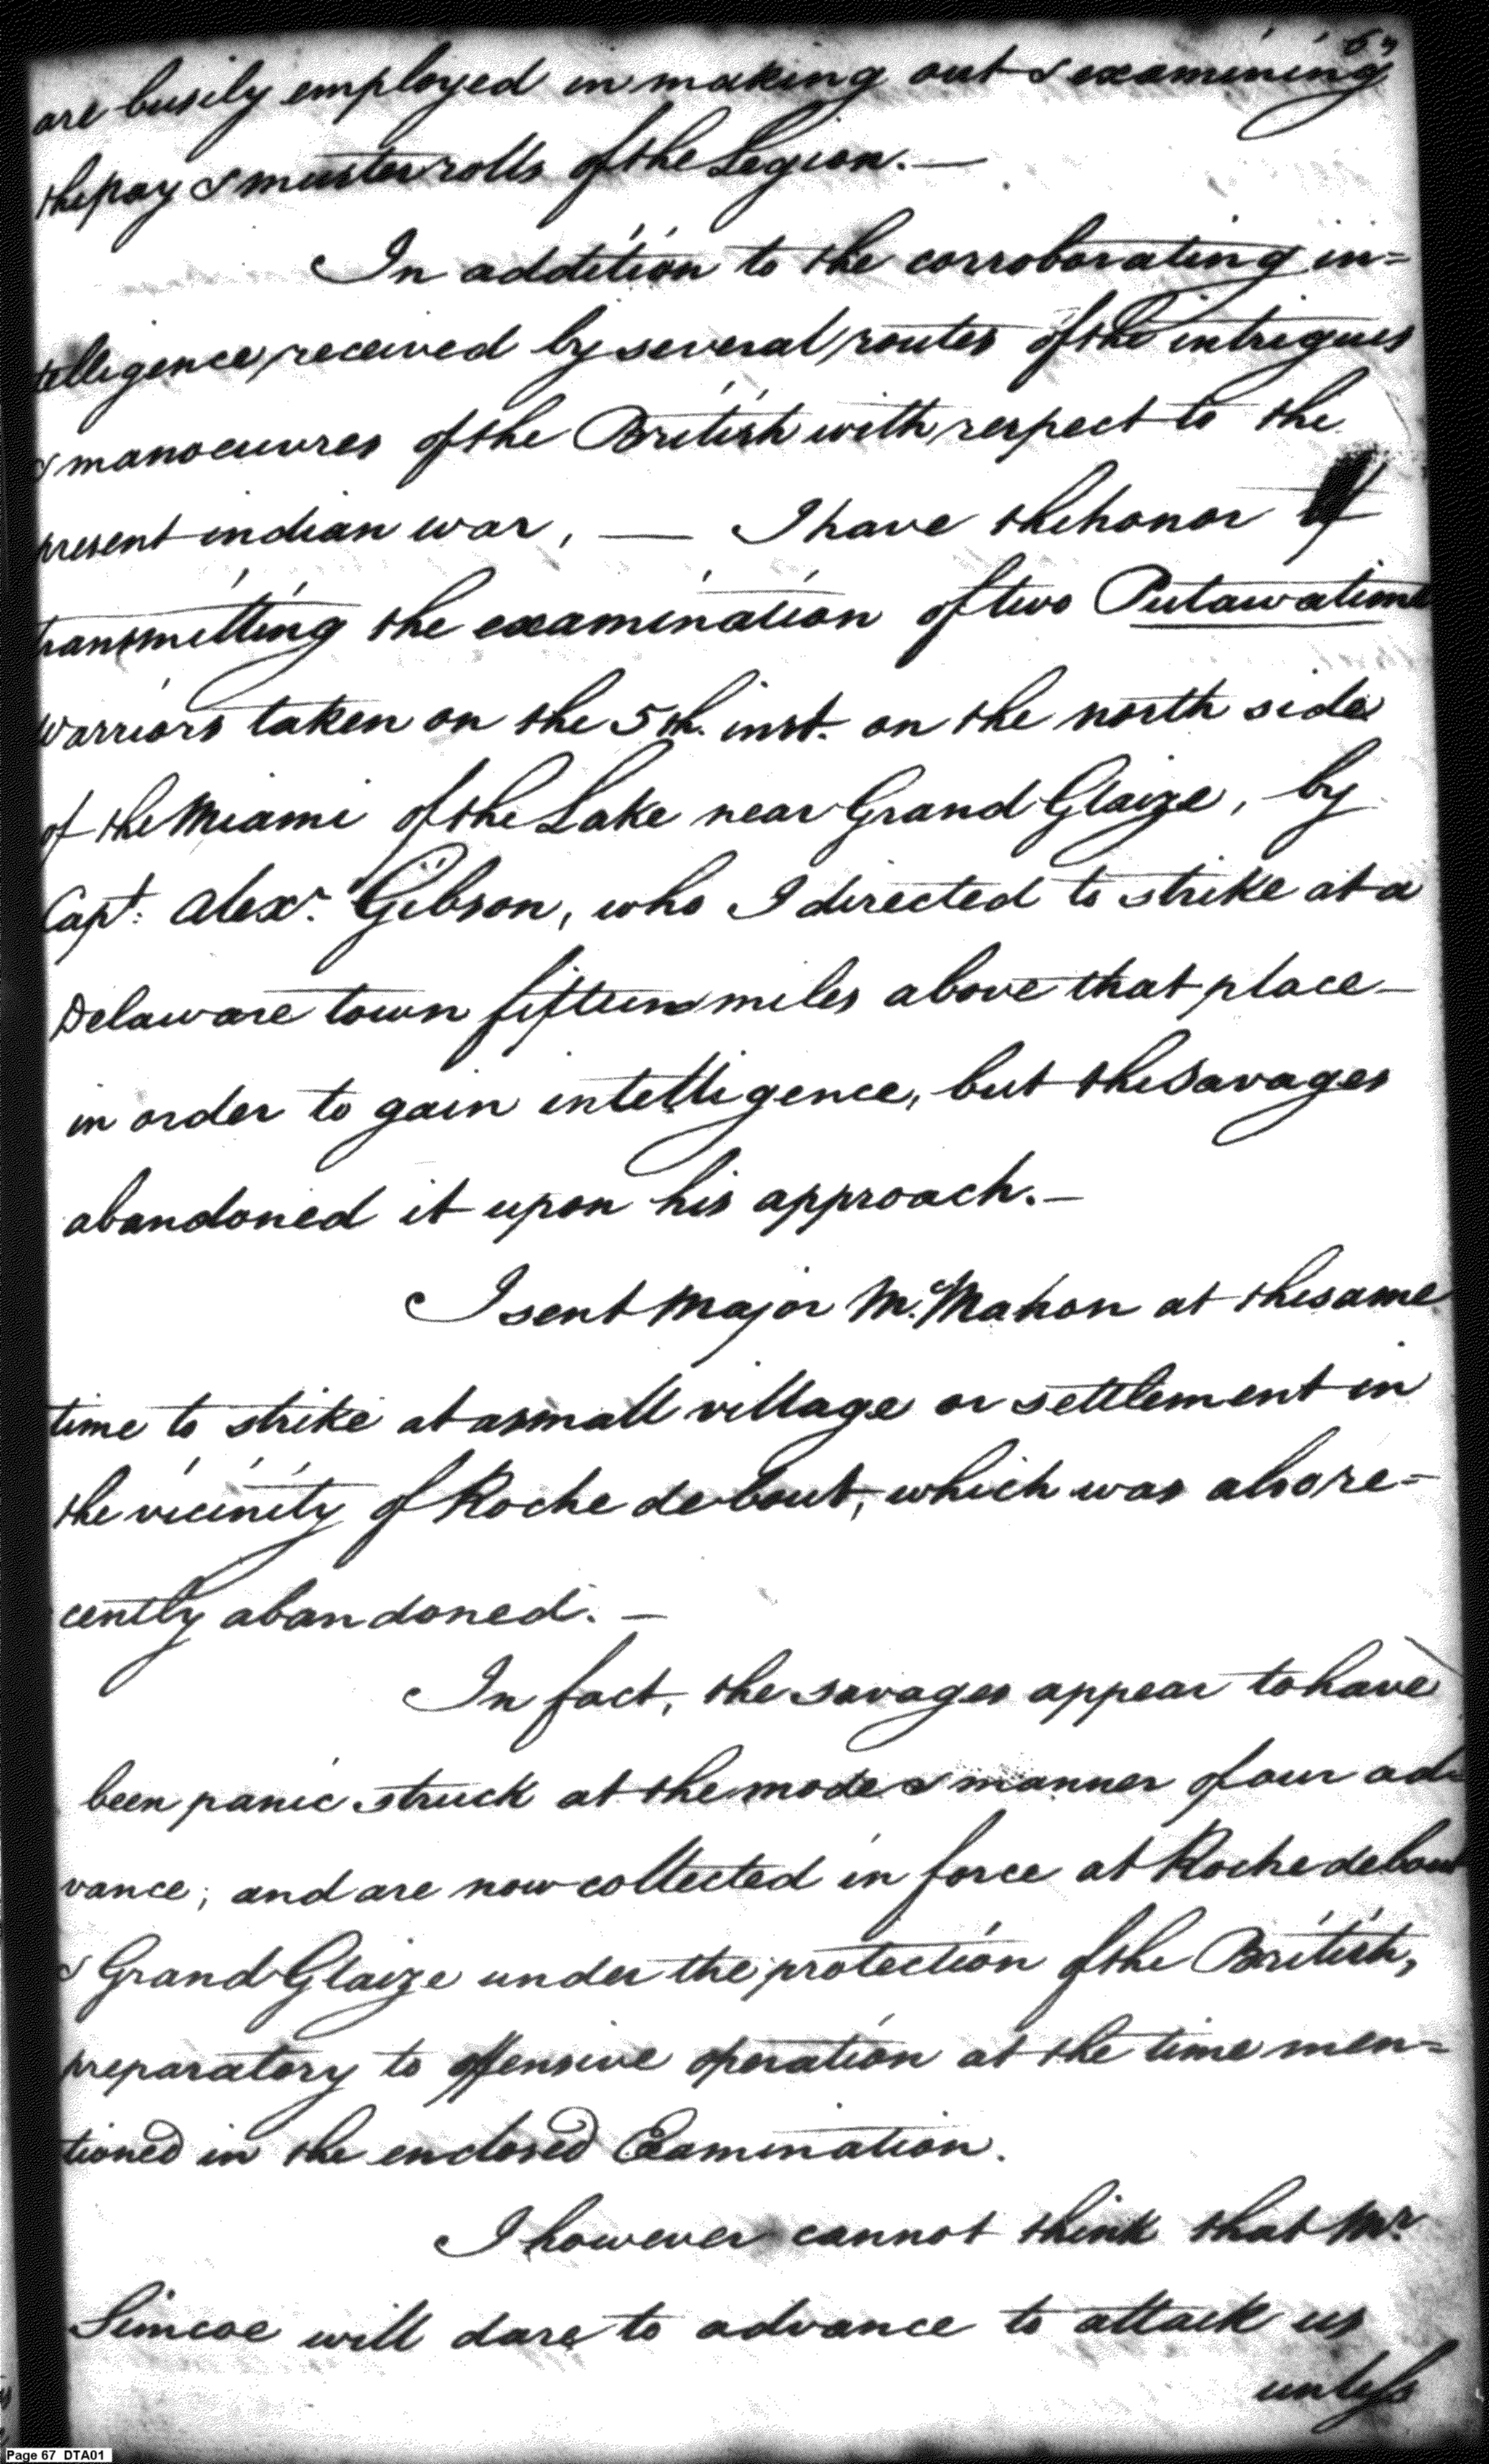 are busily employed in making out & examining
the pay & muster rolls of the Legion. —
In addition to the corroborating in=
telligence received by several routes of the intrigues
& manoeuvres of the British with respect to the
present indian war, — I have the honor of
transmitting the examination of two Putawatime
warriors taken on the 5th. inst. on the north side
of the Miami of the Lake near Grand Glaize, by
Capt: Alexr. Gibson, who I directed to strike at a
Delaware town fifteen miles above that place —
in order to gain intelligence, but the Savages
abandoned it upon his approach. —
I sent Major Mc.Mahon at the same
time to strike at a small village or settlement in
the vicinity of Roche de bout, which was also re=
cently abandoned. —
In fact, the savages appear to have
been panic struck at the mode & manner of our ad=
vance; and are now collected in force at Roche debout
& Grand Glaize under the protection of the British,
preparatory to offensive operation at the time men=
tioned in the enclosed Examination.
I however cannot think that Mr.
Simcoe will dare to advance to attack us
unless
Page 67 DTA01